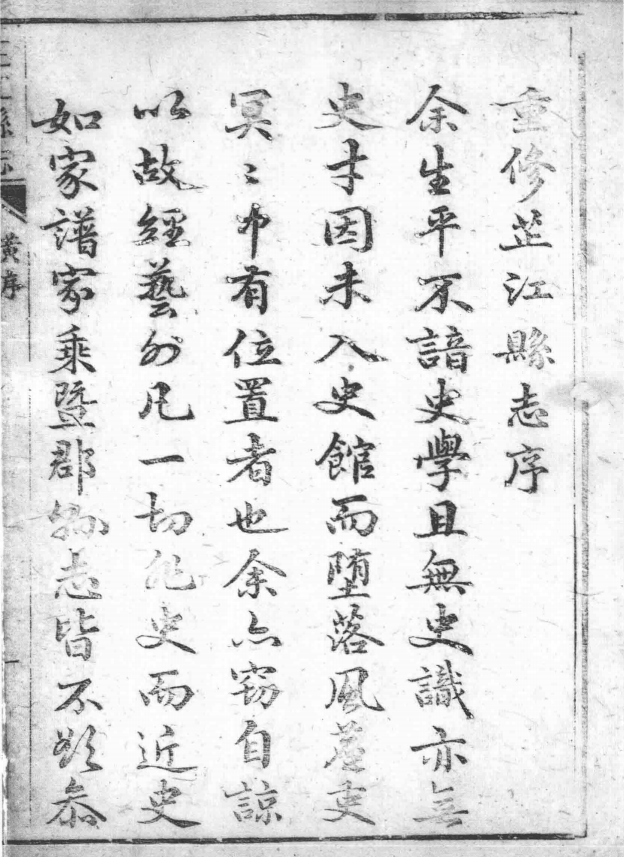 重修芷江縣志序
余生平不諳史學且無史識亦無
史才因未入史館而墮落風塵吏
冥〻中有位置者也余亦竊自諒
以故經藝外凡一切非史而近史
如家譜家乘暨郡縣志皆不欲叅
黃序